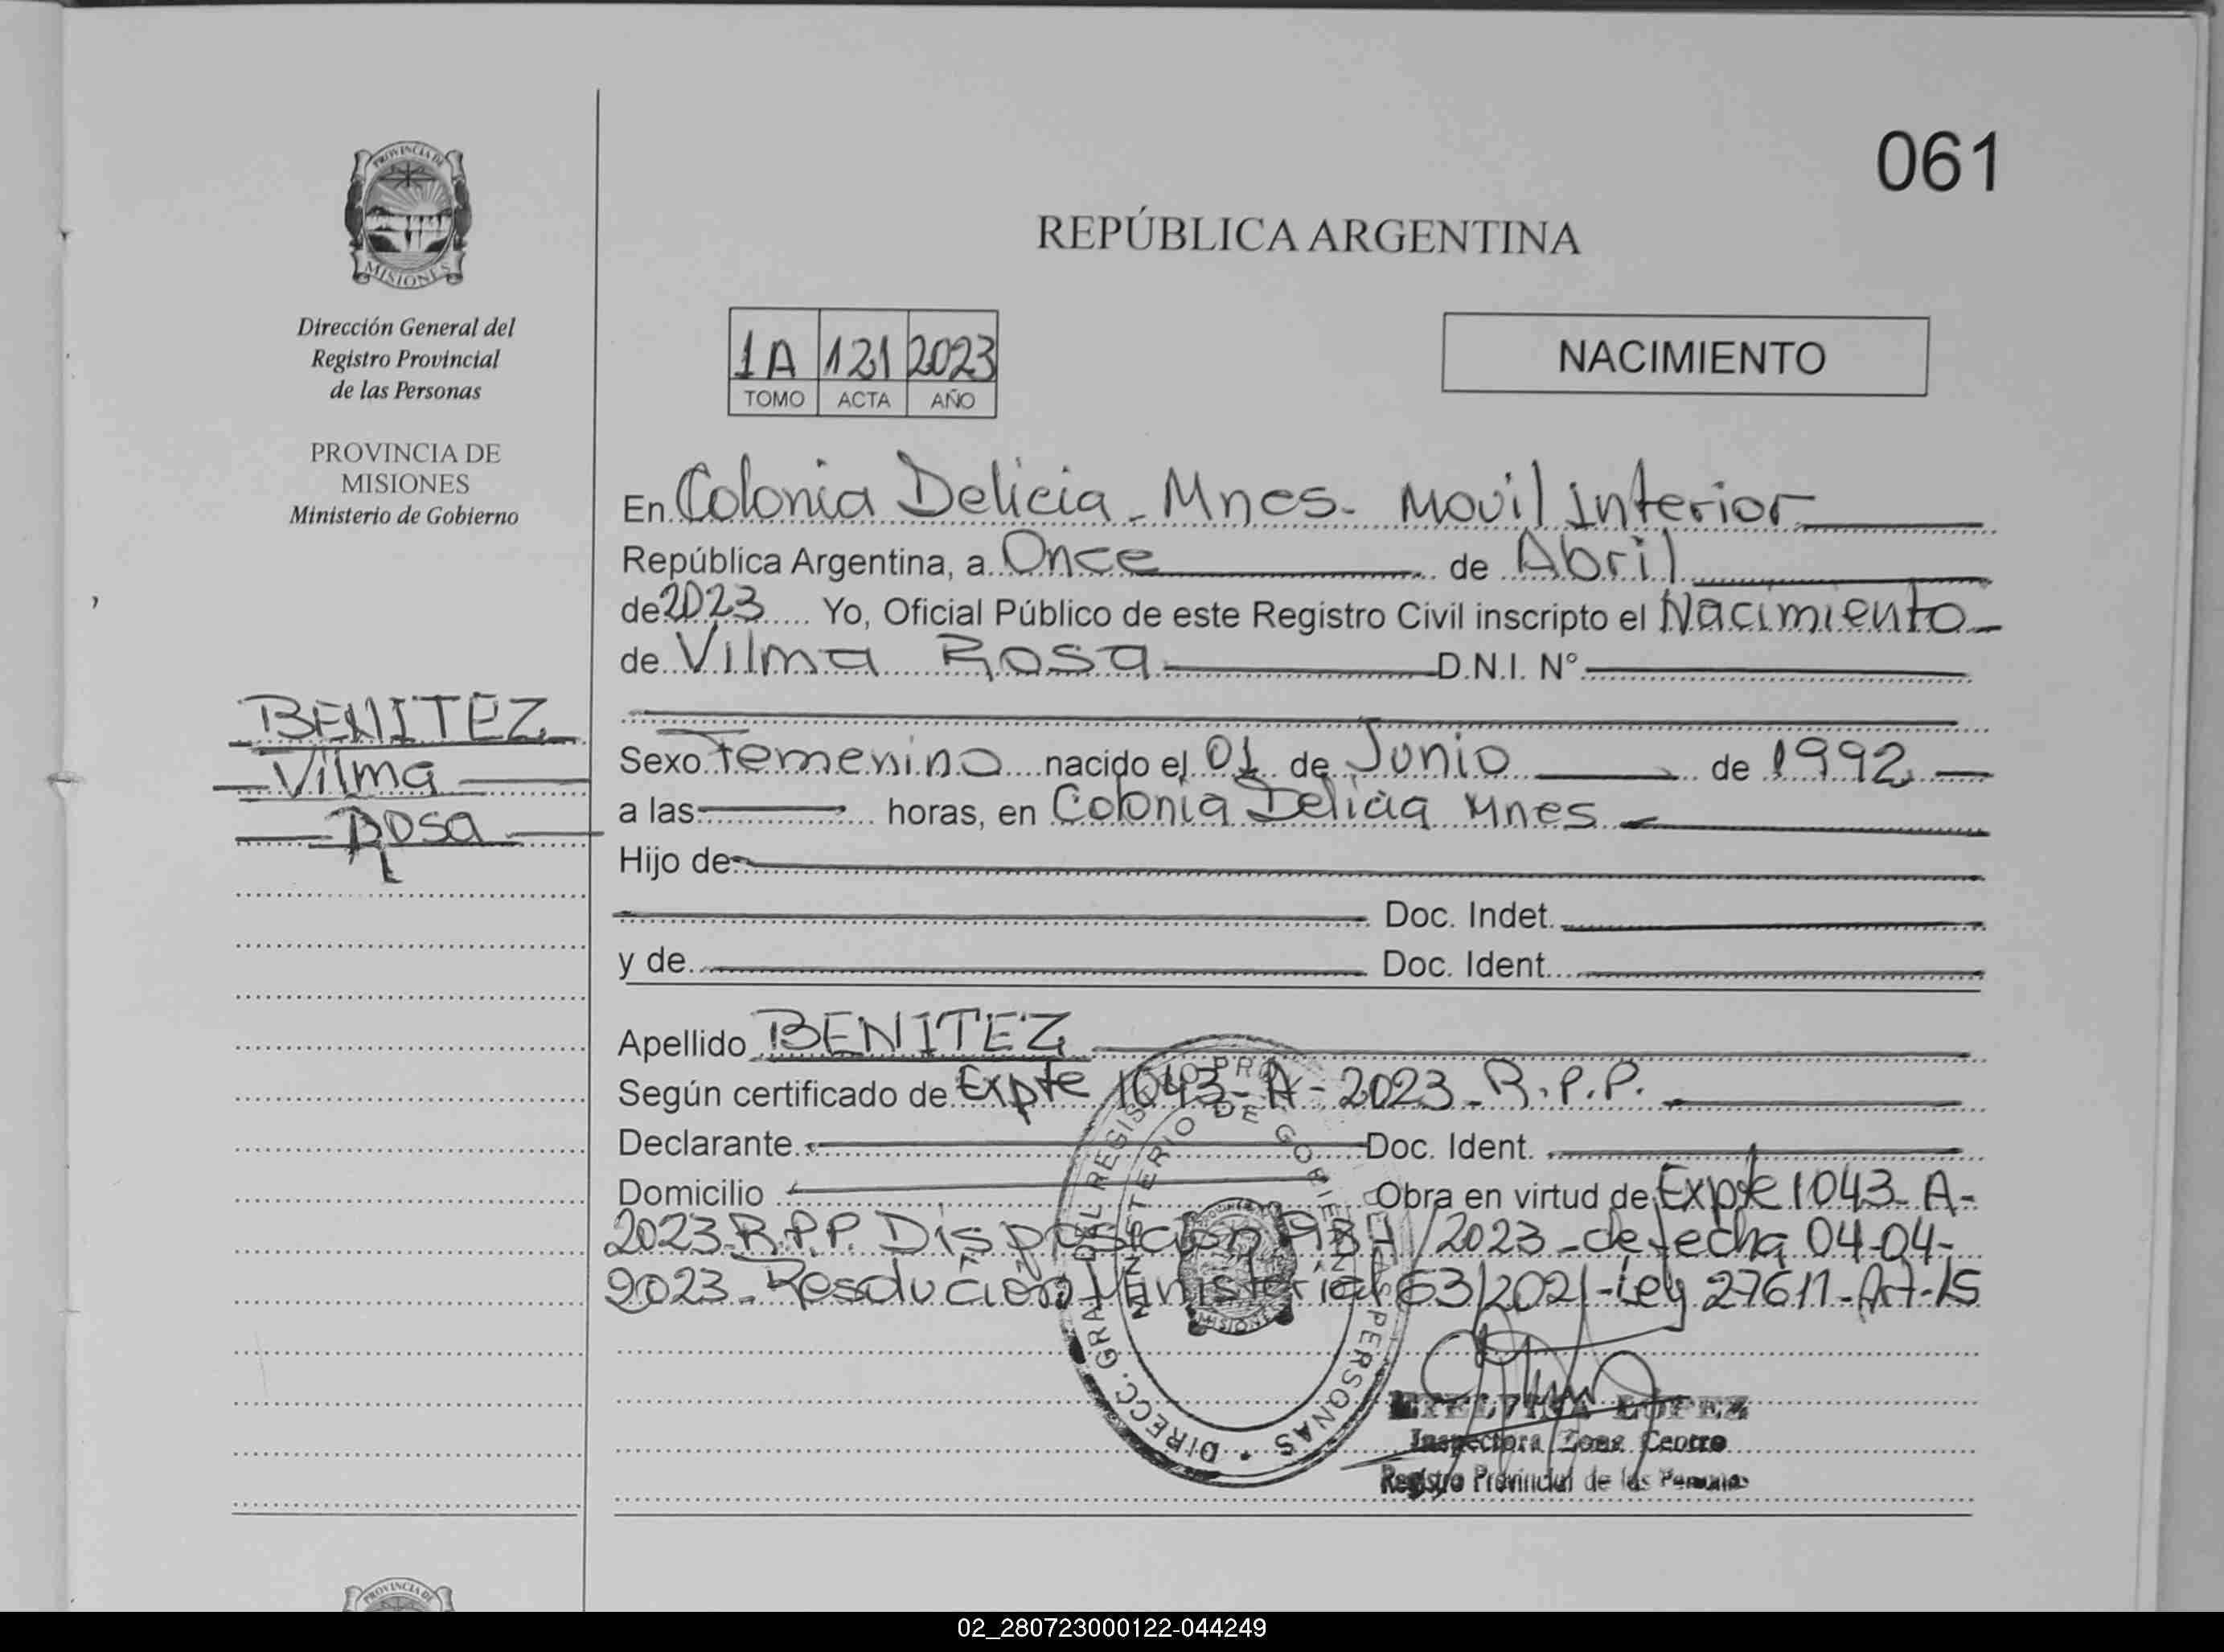 061
PROVINCIA DE
MISIONES
Dirección General del
Registro Provincial
de las Personas
PROVINCIA DE
MISIONES
Ministerio de Gobierno
BENITEZ
Vilma
Rosa
REPÚBLICA ARGENTINA
1A 121 2023
TOMO ACTA AÑO
NACIMIENTO
En Colonia Delicia - Mnes. Movil Interior
República Argentina, a Once de Abril
de 2023 Yo, Oficial Público de este Registro Civil inscripto el Nacimiento
de Vilma Rosa D.N.I. N°
Sexo Femenino nacido el 01 de Junio de 1992
a las horas, en Colonia Delicia Mnes
Hijo de
Doc. Indet.
y de Doc. Ident.
Apellido BENITEZ
Según certificado de Expte 1043-A-2023-R.P.P.
Declarante Doc. Ident.
Domicilio Obra en virtud de Expte 1043-A-
2023-R.P.P. Disposición /2023-de fecha 04-04-
2023-Resolución Ministerial 63/2021-Ley 27611-Art-15
DIRECC. GRAL DEL REGISTRO PROV. DE LAS PERSONAS
MINISTERIO DE GOBIERNO
MISIONES
LOPEZ
Inspectora Zona Centro
Registro Provincial de las Personas
PROVINCIA DE
02_280723000122-044249